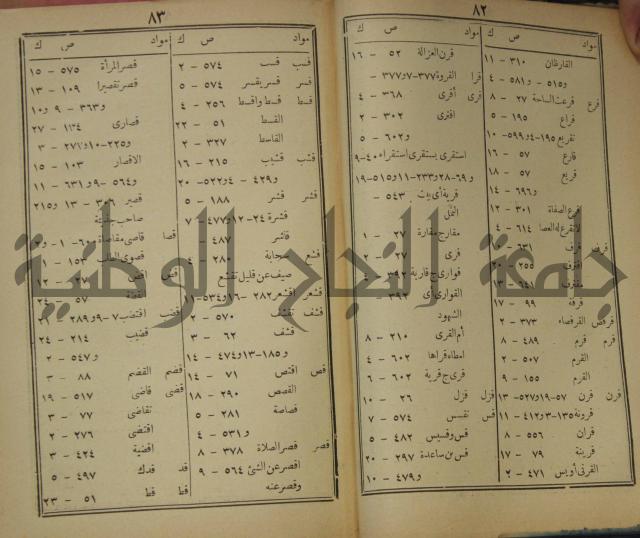 ٨٢
مواد ص ك
القارظان ٣١٠ - ١١
و٥١٥ - و٥٨١ - ٤
قرع قرعت الساحة ٢٧ - ٨
قراع ١٩٥ - ٥
تقريع ١٩٥-٤ و٥٩٩- ١٠
قارع ٥٧ - ١٦
قريع ٥٧ - ١٨
و٦٩٦ - ١٤
قرع الصفاة ٣٠١ - ١٢
لا تقرع له العصا ٦١٤ - ٤
قرفه ٩٩ - ١٧
قرفص القرفصاء ٣٧٣ - ٢
قرم قرم ٤٨٩ - ٨
القرم ٥٠٧ - ٢
القرم ١٥٥ - ٩
قرن قرن ٥٧-١٩ و٥٢٧- ١٣
قرونة ١٣٥-٣ و٤١٢- ١١
قران ٥٥٦ - ٨
قرينة ٧٩ - ١٧
القرني أويس ٤٧١ - ٢
مواد ص ك
قرن الغزالة ٥٢ - ١٦
قرا القروة ٣٧٧-٧ و٣٧٧-
قرى أقرى ٣٦٨ - ٤
اقترى ٣٠٢ - ٢
و٦٠٢ - ٥
استقرى يستقرى استقراء ٤٠-٩
و٦٩-٢٨ و٢٣٣-١١ و٥١٥-١٩
قرية أى بيت ٥٤٣ -
النمل
مقارح مقارة ٢٧ - ١
قرى ٢٧ - ٢
قوارى ج قارية ٣٩٢ - ٤
القوارى أى ٣٩٢ -
الشهود
أم القرى ٢١٠ - ٨
امطاه قراها ٦٠٢ - ٤
قرى ج قرية ٦٠٢ - ٦
قزل قزل ٢٦ - ١٠
قس تقسس ٥٧٤ - ٧
قس وقسيس ٤٨٢ - ٥
قس بن ساعدة ٢٩٧ - ٢٠
و٤٧٩ - ١٠
٨٣
مواد ص ك
قسب قسب ٥٧٤ - ٢
قسر قسر يقسر ٥٧٤ - ٥
قسط قسط واقسط ٢٥٦ - ٤
القسط ٥١ - ٢٢
القاسط ٣٢٧ - ٢
قشب قشيب ٢١٥ - ١٦
و٤٢٩ - ٤ و٥٢٢- ٢٠
قشر قشر ١٨٨ - ٥
قشرة ٢٤-١٢ و٤٧٧- ٧
قاشر ٤٨٧ -
قشع سحابة ٢٨٠ - ٤
صيف عن قليل تقشع
قشعر اقشعر ٢٨٢ - ١٦ و٥٣٤- ١١
قشف تقشف ٥٧٠ - ٢
قشف ٦٢ - ٣
و١٨٥-١٣ و٤٧٤- ١٤
قص اقتص ٧١ - ١٤
القصص ٢٩٠ - ١٨
قصاصة ٢٨١ - ٥
و٥٣١ - ٤
قصر قصر الصلاة ٣٧٨ - ٨
اقصر عن الشئ ٥٦٤ - ٩
وقصر عنه
مواد ص ك
قصر المرأة ٥٧٥ - ١٥
قصر تقصيرا ١٠٩ - ١٣
و٣٦٣ - ٩ و١٠
قصارى ١٣٤ - ٢٧
و٢٢٥-١٠ و٢٧٦- ٣
الاقصار ١٠٣ - ١٥
و٥٦٤ - ٩ و٦٣١ - ١١
قصير ٣٠٦ - ١٣ و٢١٥
صاحب جذيمة
قصا قاصى مقاصاة ٦٠٠ - ١ و٢
قصوى الطلب ١٥٣ - ١
قضب اقتضب ٧-٩ و٢٨٩ - ٢١
قضيب ٢١٤ - ٢٤
و٥٤٧ - ٢
قضم القضم ٨٨ - ٣
قضى قاضى ٥١٧ - ١٩
تقاضى ٧٧ - ٣
اقتضى ٢٧٦ - ٢
اقضية ٤٢٤ - ٣
قد قدك ٤٩٧ - ٥
قط قط ٥١ - ٢٣
جامعة النجاح الوطنية